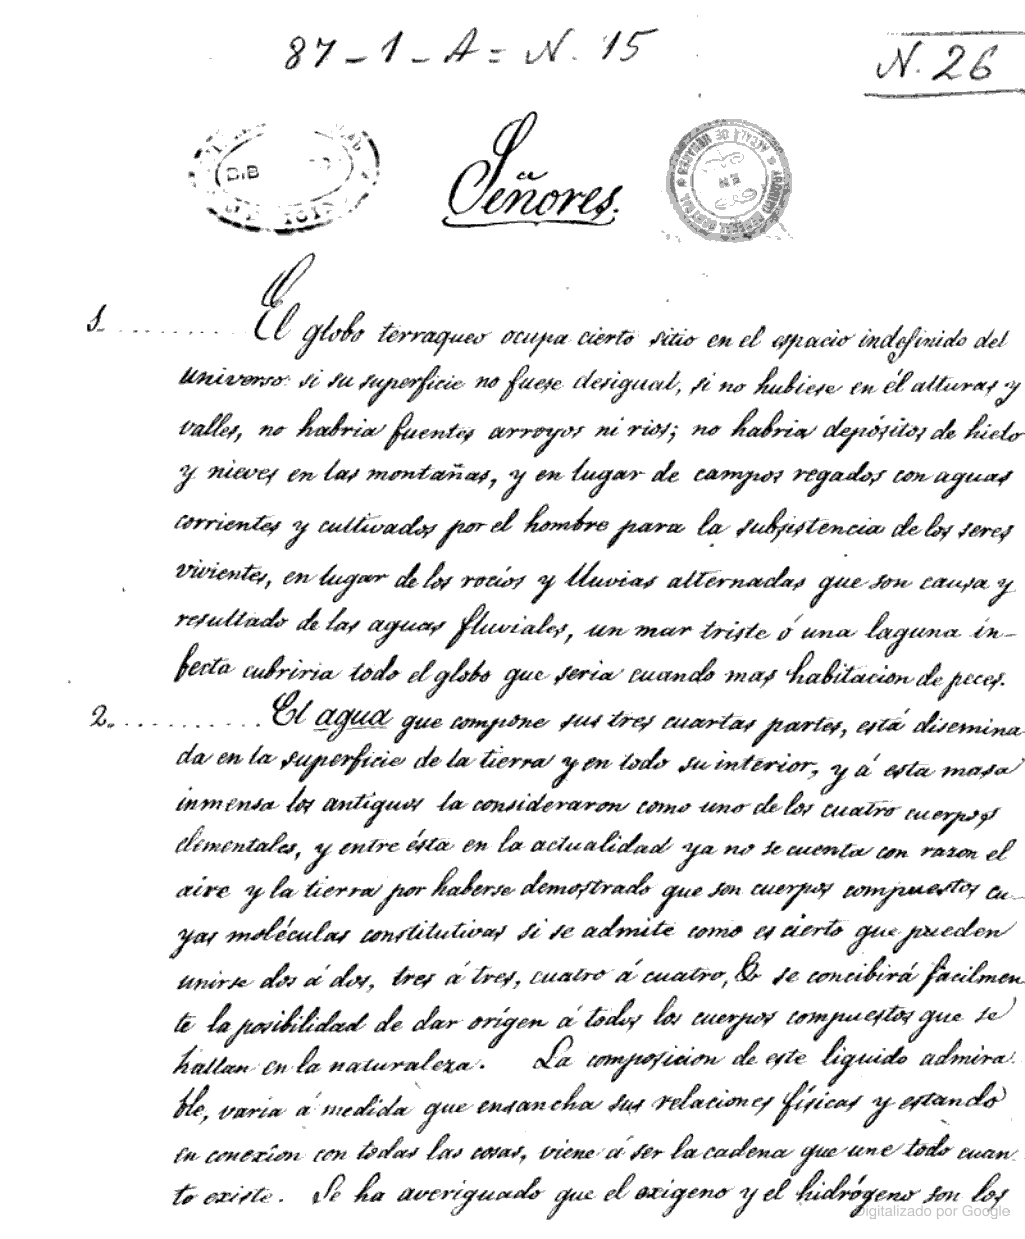 87-1-A= N. 15
N. 26
Señores.
BIB
ALCALÁ DE HENARES
1. .......... El globo terraqueo ocupa cierto sitio en el espacio indefinido del
universo: si su superficie no fuese desigual, si no hubiese en él alturas y
valles, no habria fuentes arroyos ni rios; no habria depósitos de hielo
y nieves en las montañas, y en lugar de campos regados con aguas
corrientes y cultivados por el hombre para la subsistencia de los seres
vivientes, en lugar de los rocíos y lluvias alternadas que son causa y
resultado de las aguas fluviales, un mar triste ó una laguna in-
fecta cubriria todo el globo que seria cuando mas habitacion de peces.
2. .......... El agua que compone sus tres cuartas partes, está disemina
da en la superficie de la tierra y en todo su interior, y á esta masa
inmensa los antiguos la consideraron como uno de los cuatro cuerpos
elementales, y entre ésta en la actualidad ya no se cuenta con razon el
aire y la tierra por haberse demostrado que son cuerpos compuestos cu-
yas moléculas constitutivas si se admite como es cierto que pueden
unirse dos á dos, tres á tres, cuatro á cuatro, &c se concibirá facilmen
te la posibilidad de dar orígen á todos los cuerpos compuestos que se
hallan en la naturaleza. La composicion de este liquido admira
ble, varia á medida que ensancha sus relaciones físicas y estando
en conexion con todas las cosas, viene á ser la cadena que une todo cuan
to existe. Se ha averiguado que el oxigeno y el hidrógeno son los
Digitalizado por Google